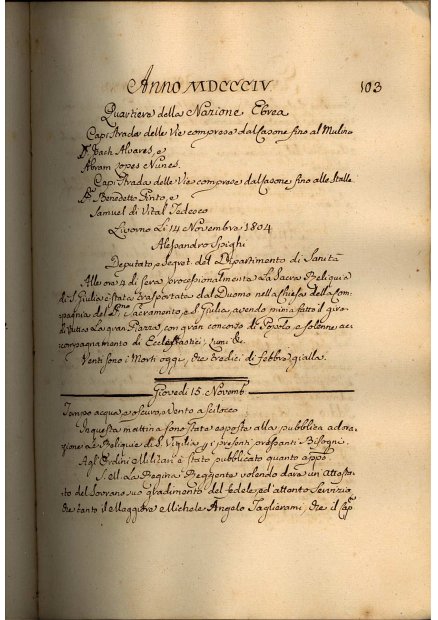 Anno MDCCCIV 103
Quartiere della Nazione Ebrea
Capi Strada delle Vie comprese dal Casone fino al Mulino
Alvares, e
Abram Lopes Nunes.
Capi Strada delle Vie comprese dal Casone fino alle Stalle
Benedetto Pinto, e
Samuel di Vital Tedesco
Livorno Li 14 Novembre 1804
Alessandro Spighi
Deputato, e Segret. del Dipartimento di Sanità
Alle ore 4 di sera processionalmente La Sacra Reliquia
di S. Giulia è stata trasportata dal Duomo nella Chiesa della Com-
pagnia del SS. Sacramento, e S. Giulia, avendo prima fatto il giro
di tutta La gran Piazza, con gran concorso di Popolo, e solenne ac-
compagnamento di Ecclesiastici, Lumi &c.
Venti sono i Morti oggi, che tredici di febbre gialla.
Giovedì 15. Novemb.
Tempo acqua, e oscuro, e vento a Scilocco
In questa mattina sono state esposte alla pubblica adora-
zione Le Reliquie di S. Giulia p i presenti pressanti Bisogni.
Agl'Ordini Militari è stato pubblicato quanto app.
S. M. La Regina Reggente volendo dare un attesta-
to del Sovrano suo gradimento del fedele, ed attento Servizio,
che tanto il Maggiore Michele Angelo Taglierani, che il Cap.